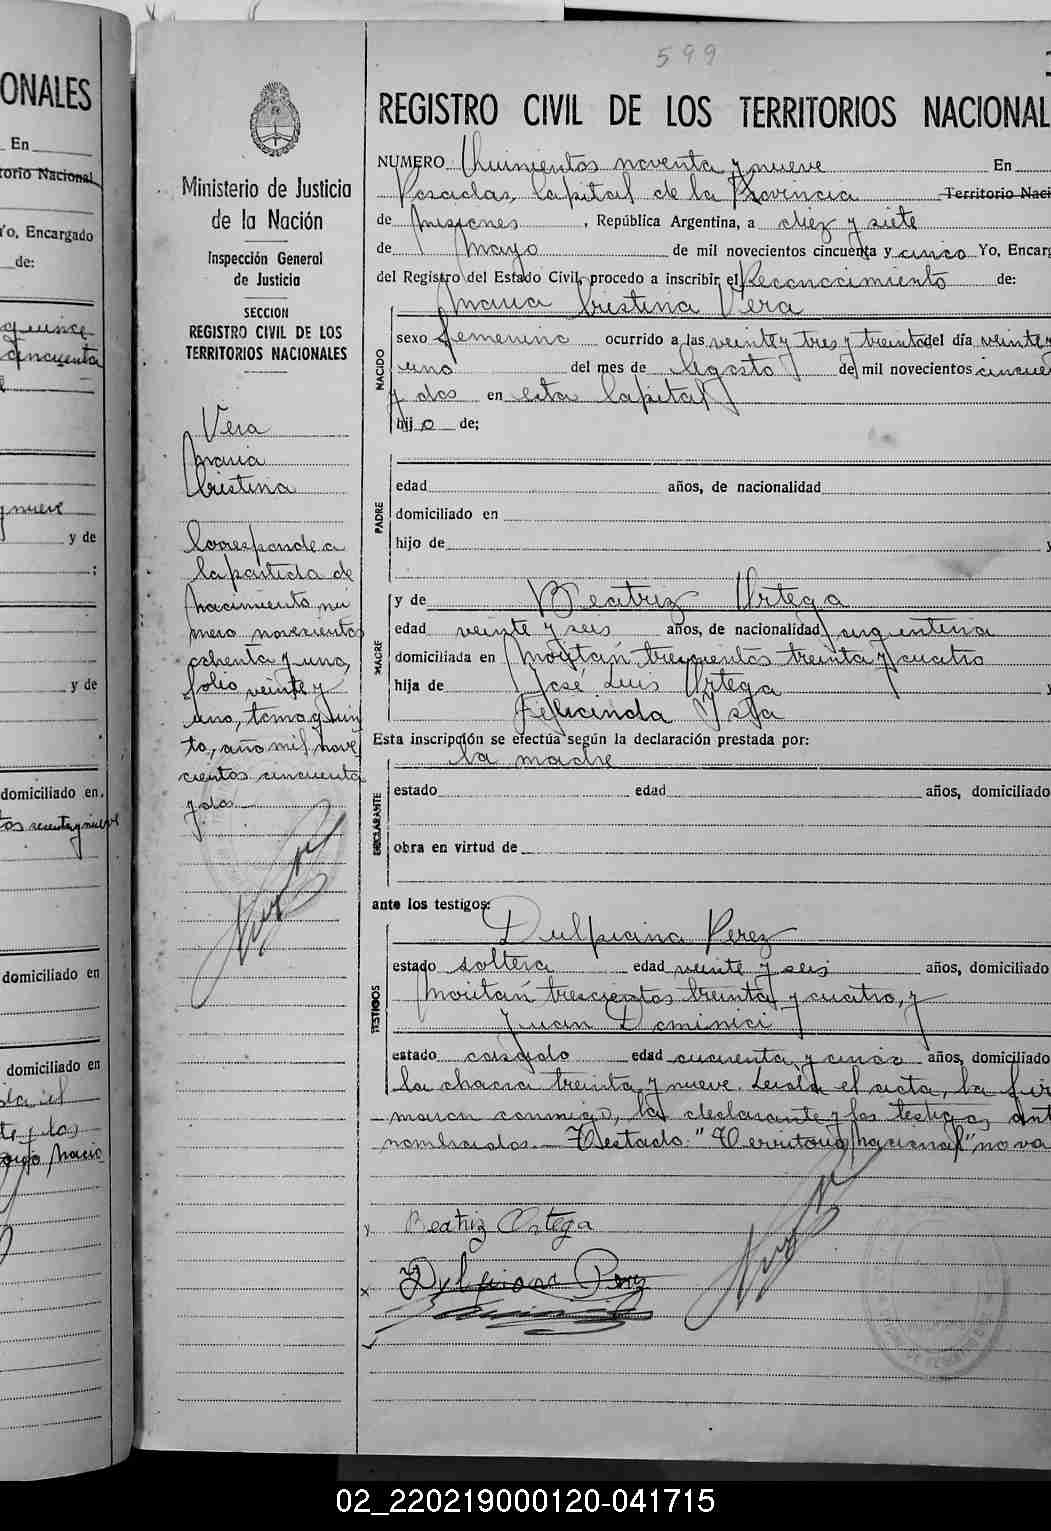 ONALES
En
torio Nacional
Yo, Encargado
de:
quince
cincuenta
nueve
y de
;
y de
domiciliado en
domiciliado en
domiciliado en
599
Ministerio de Justicia
de la Nación
Inspección General
de Justicia
SECCION
REGISTRO CIVIL DE LOS
TERRITORIOS NACIONALES
Vera
Maria
Cristina
Corresponde a
la partida de
nacimiento nú
mero novecientos
ochenta y uno,
folio veinte y
uno, tomo quin
to, año mil nove
cientos cincuenta
y dos
REGISTRO CIVIL DE LOS TERRITORIOS NACIONAL
NUMERO Quinientos noventa y nueve En
Posadas, Capital de la Provincia Territorio Naci
de Misiones, República Argentina, a diez y siete
de Mayo de mil novecientos cincuenta y cinco Yo, Encarg
del Registro del Estado Civil, procedo a inscribir el Reconocimiento de:
Maria Cristina Vera
NACIDO
sexo femenino ocurrido a las veinte y tres y treinta del día veinte y
uno del mes de Agosto de mil novecientos cincuen
y dos en esta Capital
hijo de;
PADRE
edad años, de nacionalidad
domiciliado en
hijo de y
MADRE
y de Beatriz Ortega
edad veinte y seis años, de nacionalidad argentina
domiciliada en Moritán trescientos treinta y cuatro
hija de José Luis Ortega y
Felicinda
Esta inscripción se efectúa según la declaración prestada por:
la madre
DECLARANTE
estado edad años, domiciliado
obra en virtud de
ante los testigos:
Dulpiana Perez
TESTIGOS
estado soltera edad veinte y seis años, domiciliado
Moritán trescientos treinta y cuatro, y
Juan Dominici
estado casado edad cuarenta y cinco años, domiciliado
la chacra treinta y nueve. Leída el acta, la fir
maron conmigo, la declarante y los testigos ant
nombrados. Testado: "Territorio Nacional" no va
Beatriz Ortega
Dulpiana Perez
02_220219000120-041715